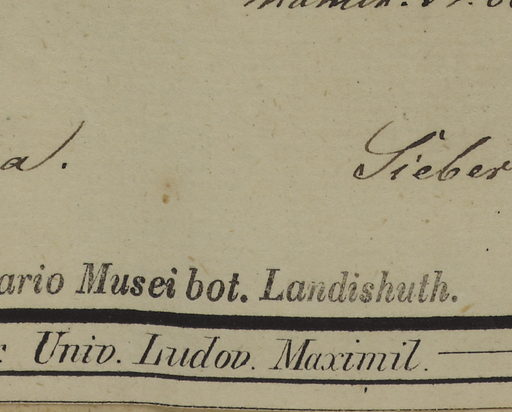 a).
Sieber
ario Musei bot. Landishuth.
Univ. Ludov. Maximil.